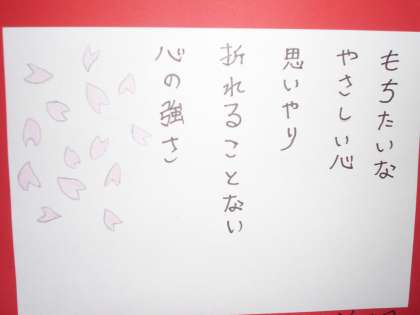 もちたいな
やさしい心
思いやり
折れることない
心の強さ